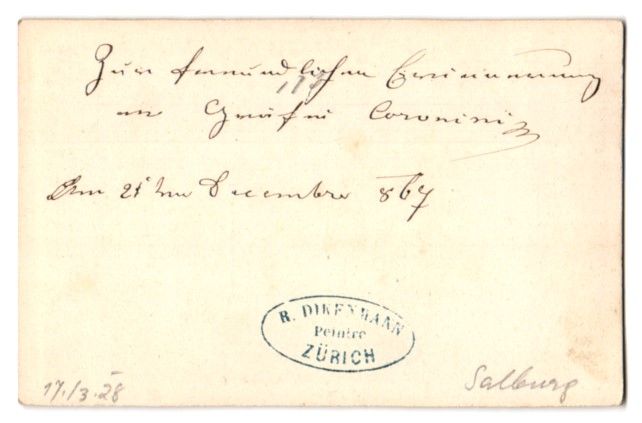 Zur freundlichen Erinnerung
an Gräfin Coronini
Am 25ten Decembre 867
R. DIKENMANN
Peintre
ZÜRICH
17./3.28
Salburg